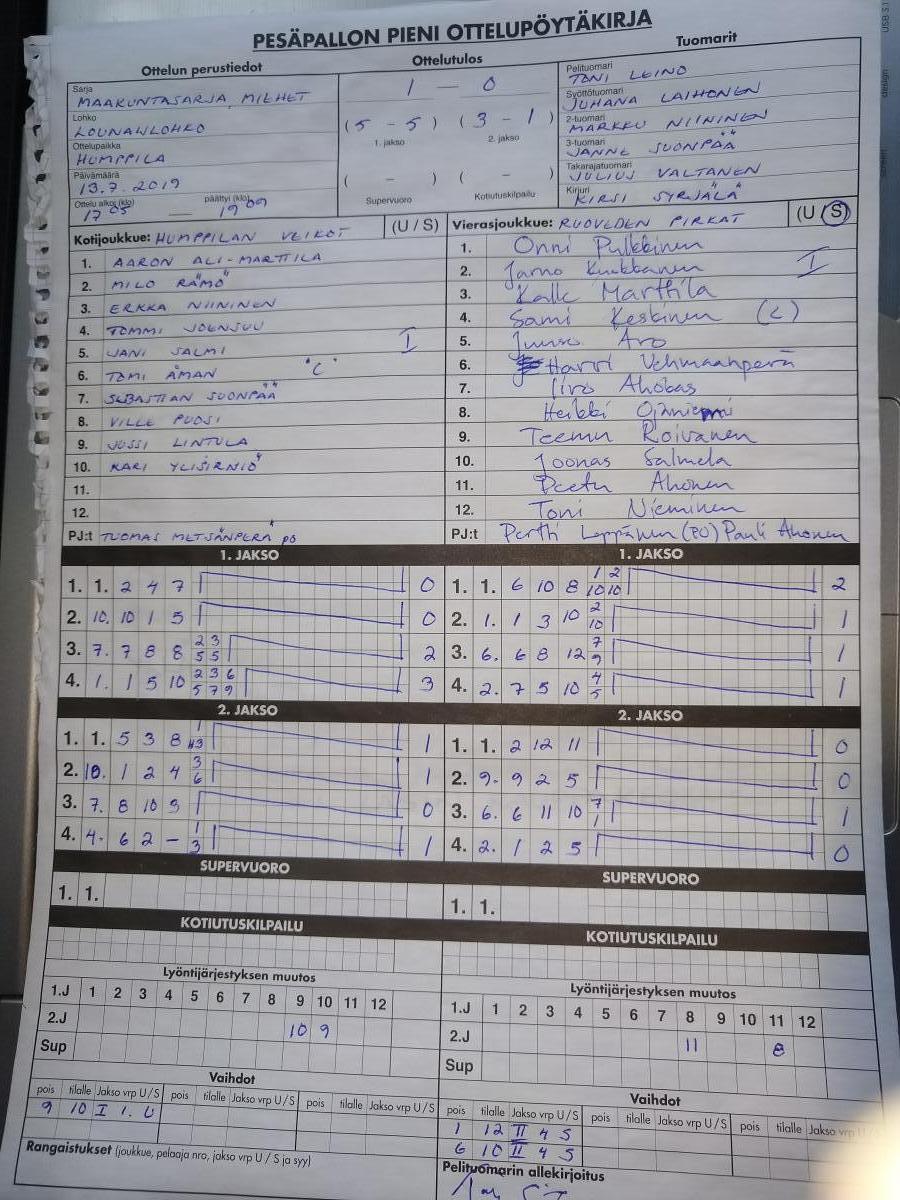 PESÄPALLON PIENI OTTELUPÖYTÄKIRJA
Ottelun perustiedot
Sarja
MAAKUNTASARJA, MIEHET
Lohko
LOUNAISLOHKO
Ottelupaikka
HUMPPILA
Päivämäärä
13.7.2019
Ottelu alkoi (klo) päättyi (klo)
17 05 — 19 09
Ottelutulos
1 — 0
(5 - 5) (3 - 1)
1. jakso 2. jakso
( - ) ( - )
Supervuoro Kotiutuskilpailu
Tuomarit
Pelituomari
TONI LEINO
Syöttötuomari
JUHANA LAIHONEN
2-tuomari
MARKKU NIININEN
3-tuomari
JANNE SUONPÄÄ
Takarajatuomari
JULIUS VALTANEN
Kirjuri
KIRSI SYRJÄLÄ
Kotijoukkue: HUMPPILAN VEIKOT (U / S)
1. AARON ALI-MARTTILA
2. MILO RÄMÖ
3. ERKKA NIININEN
4. TOMMI JOENSUU
5. JANI SALMI I
6. TOMI ÅMAN "C"
7. SEBASTIAN SUONPÄÄ
8. VILLE PUOSI
9. JUSSI LINTULA
10. KARI YLISIRNIÖ
11.
12.
PJ:t TUOMAS METSÄNPERÄ PO
Vierasjoukkue: RUOVEDEN PIRKAT (U / S)
1. Onni Pulkkinen
2. Jarno I
3. Kalle Marttila
4. Sami Keskinen (C)
5. Juuso Aro
6. Harri Vehmaanperä
7. Iiro Ahokas
8. Heikki Ojaniemi
9. Teemu Roivanen
10. Joonas Salmela
11. Peetu Ahonen
12. Toni Nieminen
PJ:t Pertti Leppänen (PO) Pauli Ahonen
1. JAKSO
1. 1. 2 4 7 0
2. 10. 10 1 5 0
3. 7. 7 8 8 2 3 2
5 5
4. 1. 1 5 10 2 3 6 3
5 7 9
1. JAKSO
1. 1. 6 10 8 1 2 2
10 10
2. 1. 1 3 10 2 1
10
3. 6. 6 8 12 7 1
9
4. 2. 7 5 10 4 1
5
2. JAKSO
1. 1. 5 3 8 1 1
3
2. 10. 1 2 4 3 1
6
3. 7. 8 10 9 0
4. 4. 6 2 - 1 1
3
2. JAKSO
1. 1. 2 12 11 0
2. 9. 9 2 5 0
3. 6. 6 11 10 7 1
1
4. 2. 1 2 5 0
SUPERVUORO
1. 1.
SUPERVUORO
1. 1.
KOTIUTUSKILPAILU
KOTIUTUSKILPAILU
Lyöntijärjestyksen muutos
1.J 1 2 3 4 5 6 7 8 9 10 11 12
2.J 10 9
Sup
Lyöntijärjestyksen muutos
1.J 1 2 3 4 5 6 7 8 9 10 11 12
2.J 11 8
Sup
Vaihdot
pois tilalle Jakso vrp U / S pois tilalle Jakso vrp U / S pois tilalle Jakso vrp U / S
9 10 I 1. U
Vaihdot
pois tilalle Jakso vrp U / S pois tilalle Jakso vrp U / S pois tilalle Jakso vrp U / S
1 12 II 4 S
6 10 II 4 S
Rangaistukset (joukkue, pelaaja nro, jakso vrp U / S ja syy)
Pelituomarin allekirjoitus
design
USB 3.1